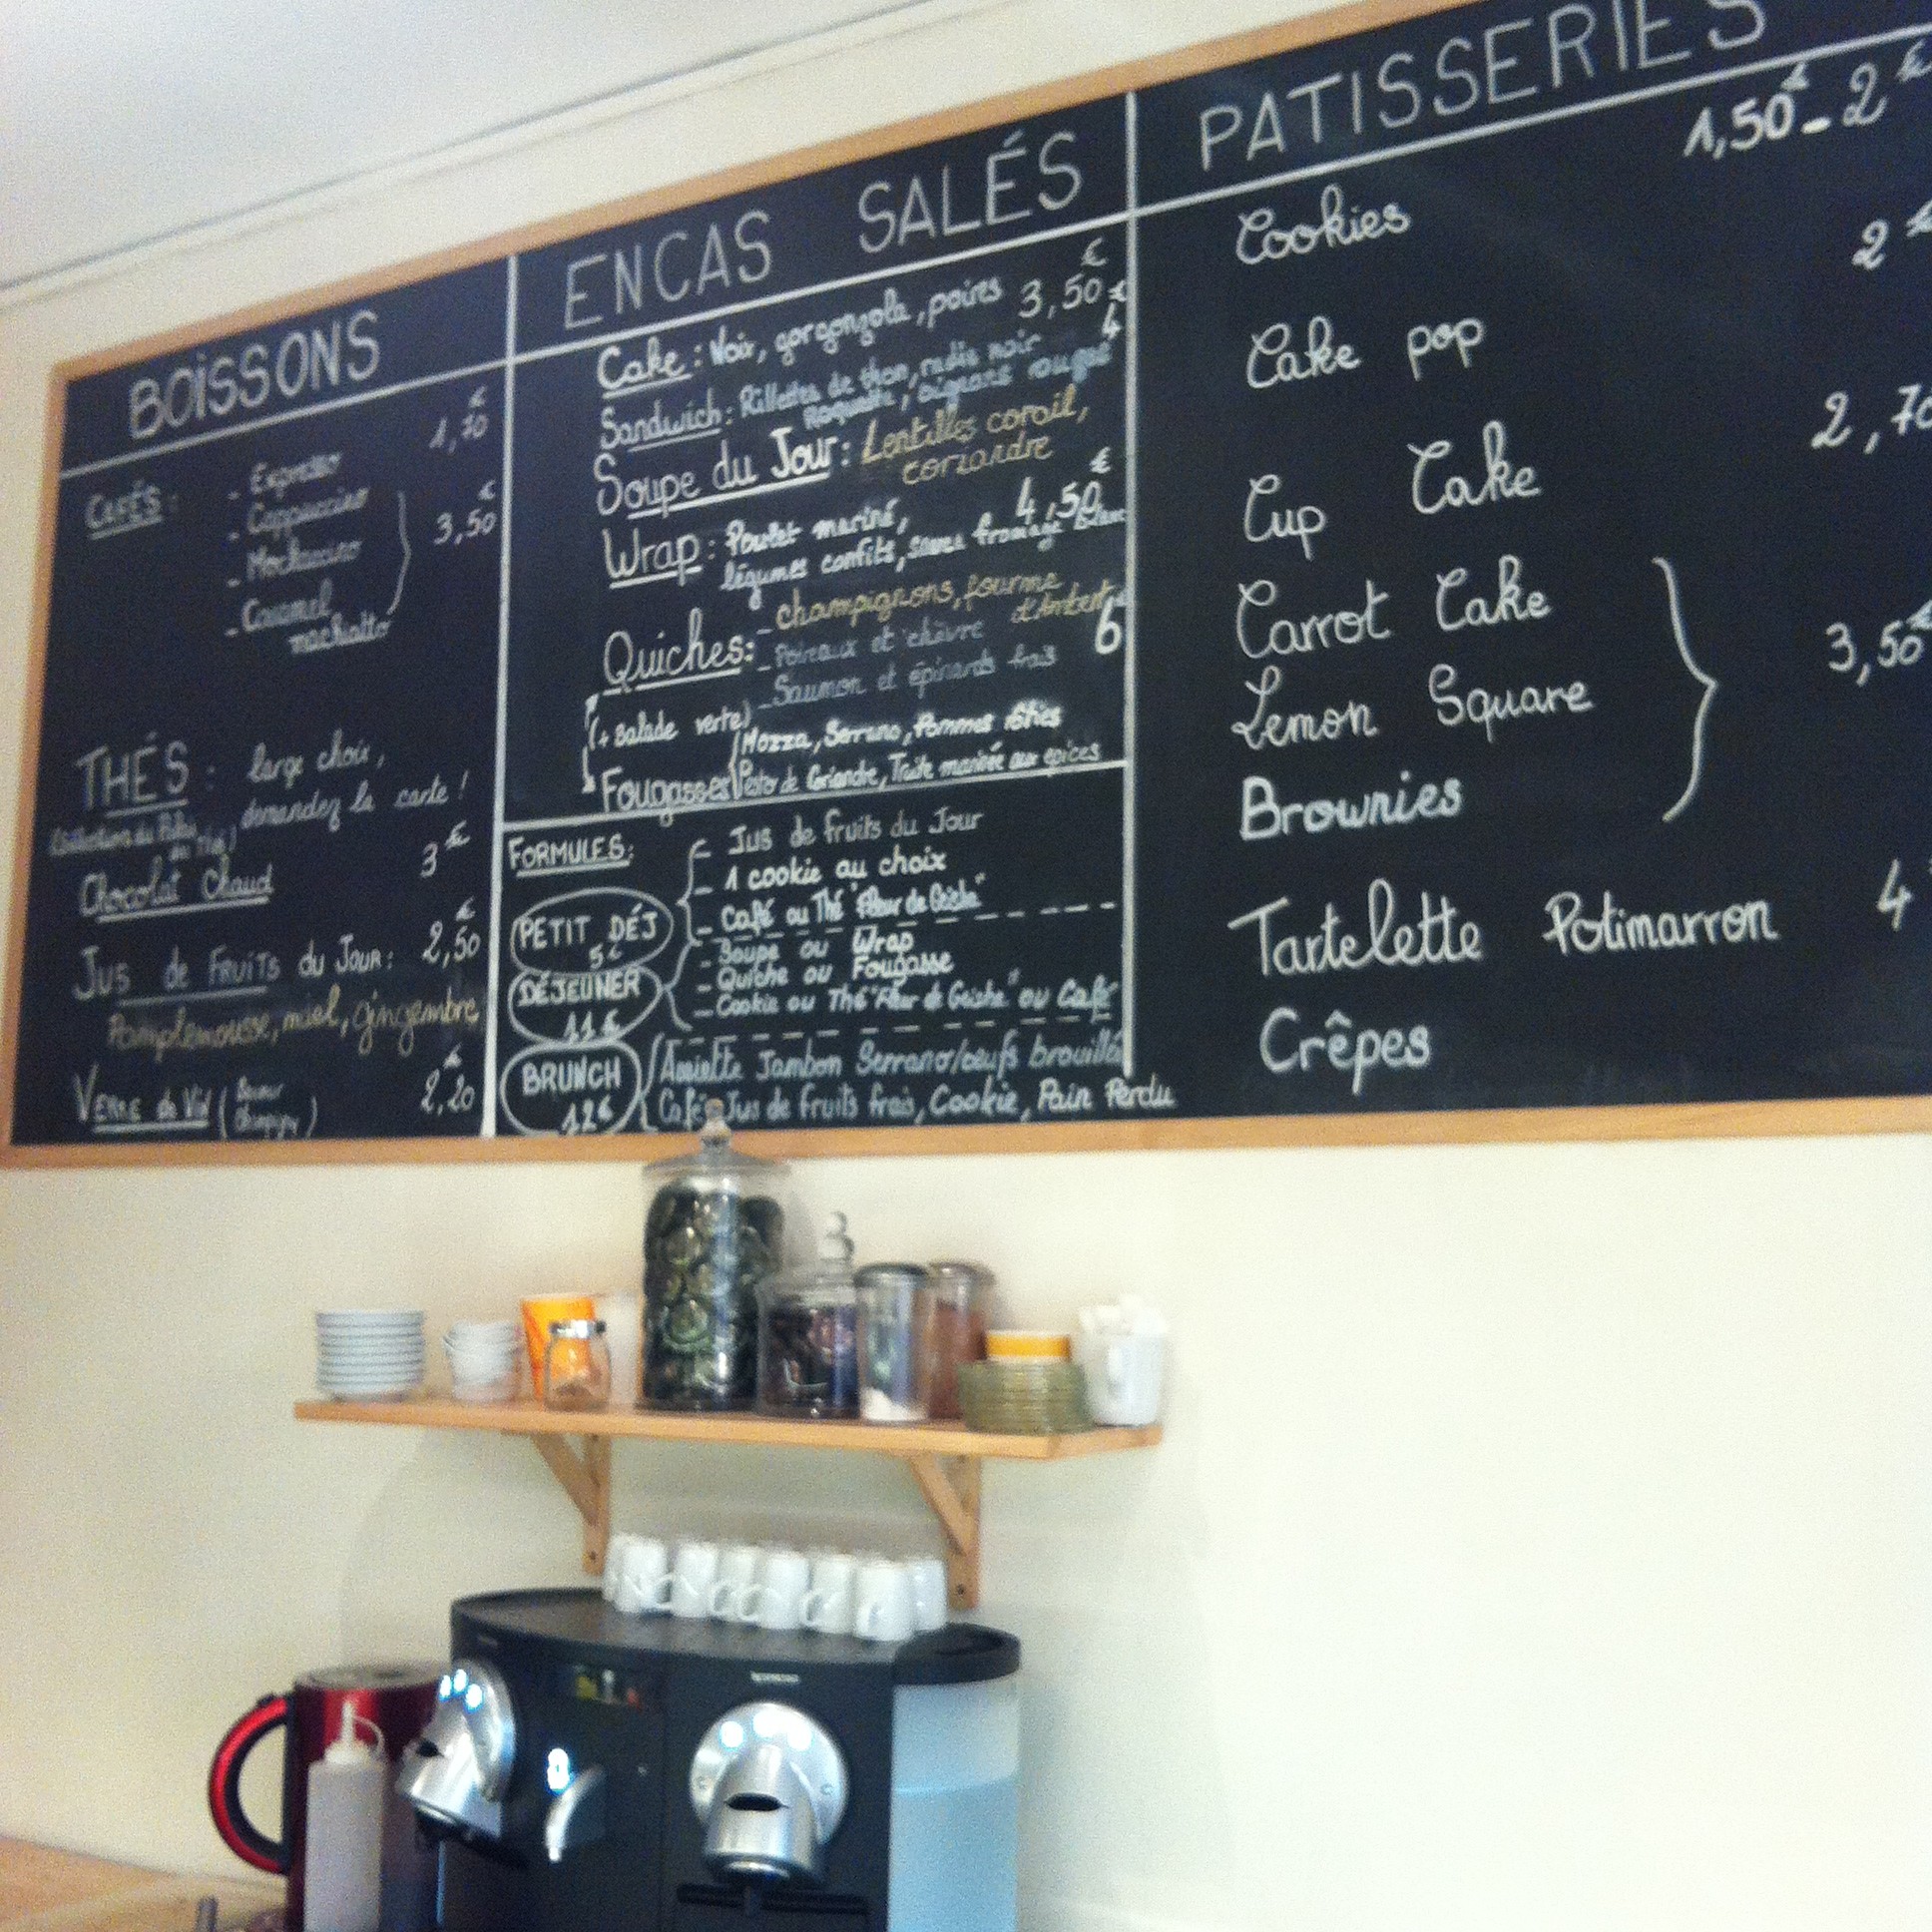 BOISSONS
CAFÉS :
- Expresso 1,70 €
- Cappuccino
- Mochaccino 3,50 €
- Caramel
machiatto
THÉS : large choix,
demandez la carte !
Chocolat Chaud 3 €
JUS de FRUITS du JOUR : 2,50 €
Pamplemousse, miel, gingembre
VERRE de Vin ( ) 2,20 €
ENCAS SALÉS
Cake : Noix, gorgonzola, poires 3,50 €
Sandwich : Rillettes de thon, radis noir 4 €
Roquette, oignons rouges
Soupe du Jour : Lentilles corail,
coriandre
Wrap : Poulet mariné, 4,50 €
légumes confits, sauce fromage blanc
Quiches : - champignons, fourme
d'Ambert
- Poireaux et chèvre 6
- Saumon et épinards frais
(+ salade verte)
Mozza, Serrano, Pommes rôties
Fougasses Pesto de Coriandre, Truite marinée aux épices
FORMULES :
PETIT DÉJ
5 €
- Jus de fruits du Jour
- 1 cookie au choix
- Café ou Thé "Fleur de Geisha"
DÉJEUNER
11 €
- Soupe ou Wrap
- Quiche ou Fougasse
- Cookie ou Thé "Fleur de Geisha" ou Café
BRUNCH
12 €
Assiette Jambon Serrano/oeufs brouillés
Café, Jus de fruits frais, Cookie, Pain Perdu
PATISSERIES
Cookies 1,50 € - 2 €
Cake pop 2 €
Cup Cake 2,70
Carrot Cake
Lemon Square 3,50 €
Brownies
Tartelette Potimarron 4
Crêpes